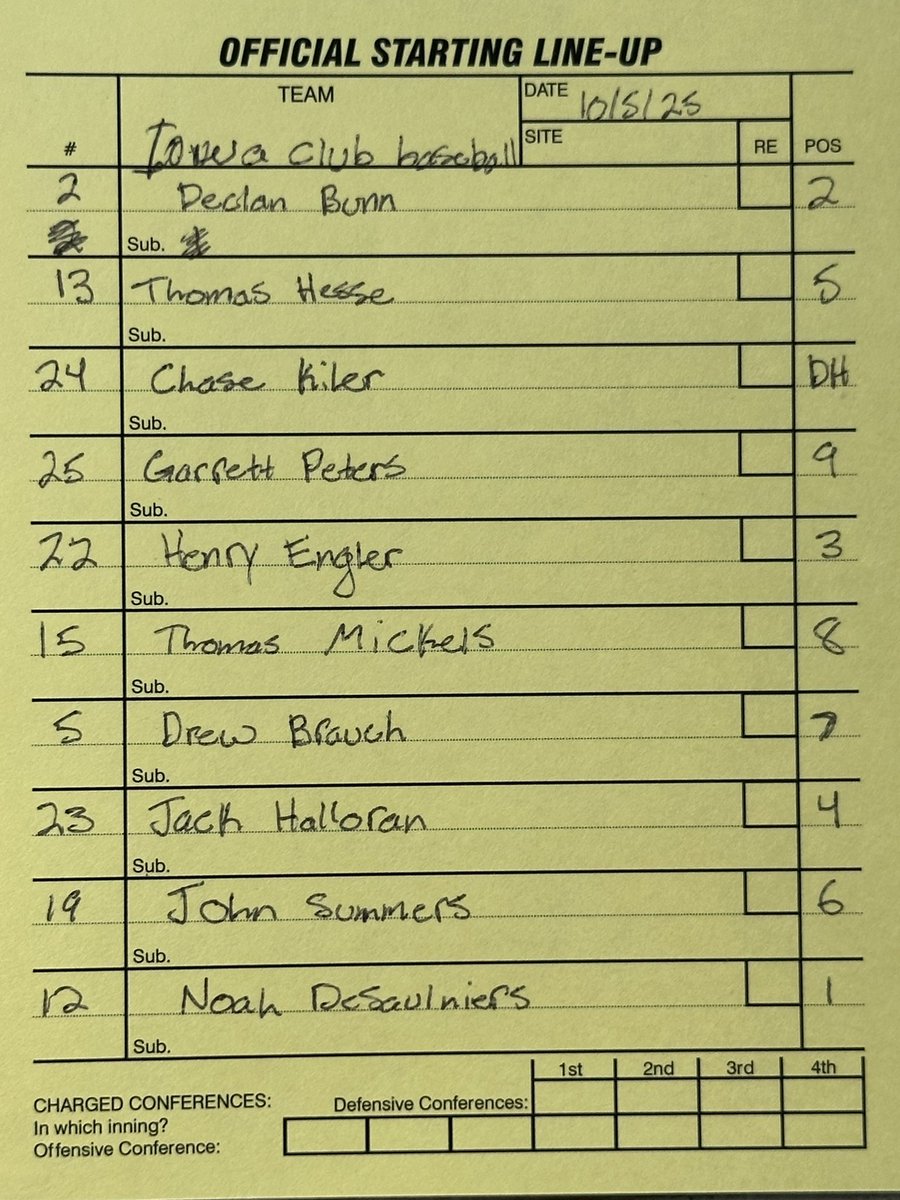 OFFICIAL STARTING LINE-UP
TEAM DATE 10/5/25
# Iowa Club baseball SITE RE POS
2 Declan Bunn 2
Sub.
13 Thomas Hesse 5
Sub.
24 Chase Kiler DH
Sub.
25 Garrett Peters 9
Sub.
22 Henry Engler 3
Sub.
15 Thomas Mickels 8
Sub.
5 Drew Brauch 7
Sub.
23 Jack Halloran 4
Sub.
19 John Summers 6
Sub.
12 Noah DeSaulniers 1
Sub.
1st 2nd 3rd 4th
CHARGED CONFERENCES: Defensive Conferences:
In which inning?
Offensive Conference: